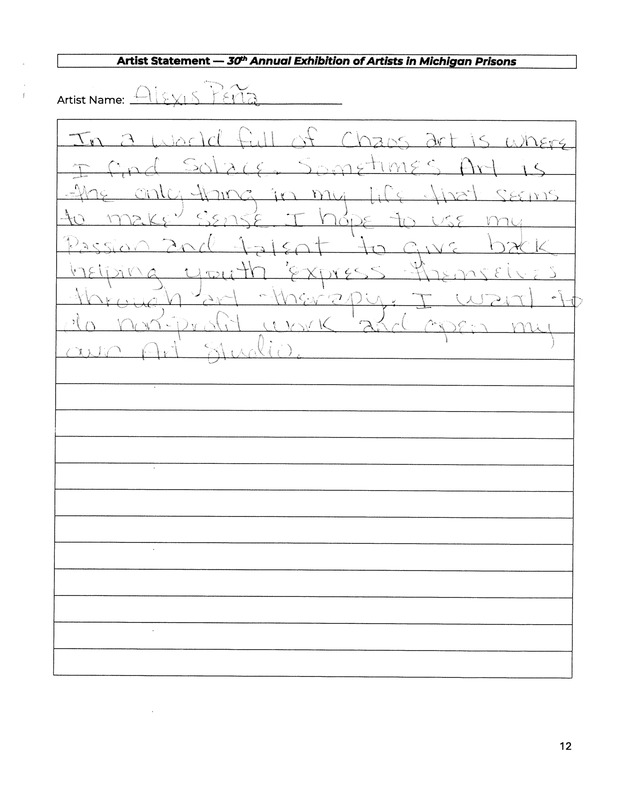 Artist Statement — 30th Annual Exhibition of Artists in Michigan Prisons
Artist Name: Alexis Peña
In a world full of Chaos art is where
I find Solace. Sometimes Art is
the only thing in my life that seems
to make sense I hope to use my
Passion and talent to give back
helping youth express themselves
through art therapy. I want to
do non-profit work and open my
own Art Studio.
12